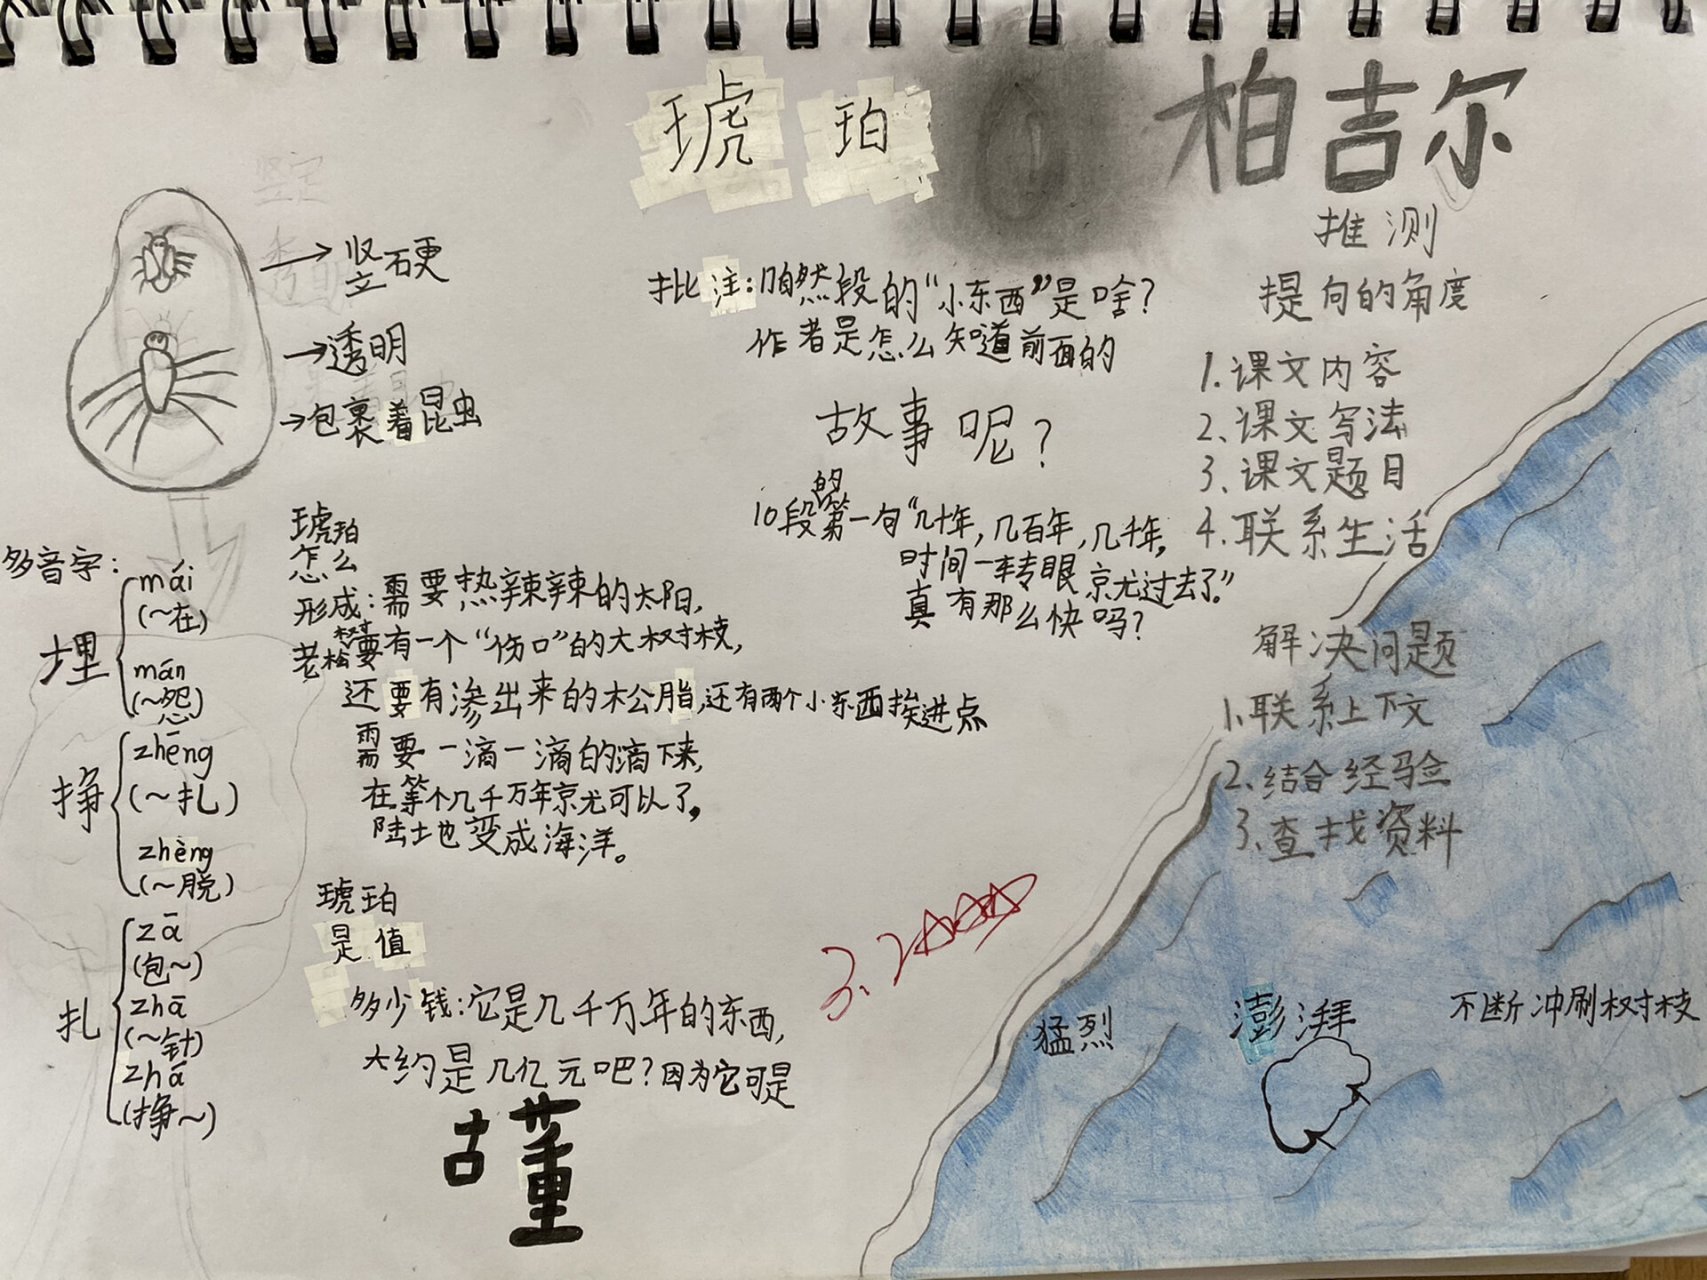 琥珀
柏吉尔
→坚硬
→透明
→包裹着昆虫
批注:自然段的“小东西”是啥?
作者是怎么知道前面的
故事呢?
10段的第一句“几十年,几百年,几千年,
时间一转眼就过去了”
真有那么快吗?
推测
提问的角度
1.课文内容
2.课文写法
3.课文题目
4.联系生活
解决问题
1.联系上下文
2.结合经验
3.查找资料
多音字:
埋
mái
(~在)
mán
(~怨)
挣
zhēng
(~扎)
zhèng
(~脱)
扎
zā
(包~)
zhā
(~针)
zhá
(挣~)
琥珀
怎么
形成:需要热辣辣的太阳,
老松树要有一个“伤口”的大树枝,
还要有渗出来的松脂,还有两个小东西挨进点
需要一滴一滴的滴下来,
在等个几千万年就可以了。
陆地变成海洋。
琥珀
是值
多少钱:它是几千万年的东西,
大约是几亿元吧?因为它可是
古董
3.2
猛烈
澎湃
不断冲刷树枝